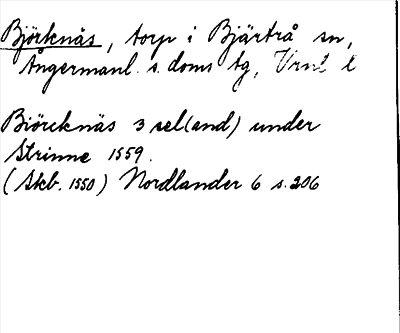 Björknäs, torp i Bjärtrå sn,
Ångermanl. s. doms tg, Vrnl l
Biörcknäs 3 sel(and) under
Strinne 1559.
(Skb. 1550) Nordlander 6 s. 206